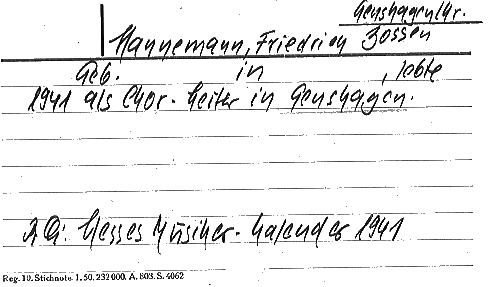 Genshagen/Kr.
Hannemann, Friedrich Zossen
Geb. in , lebte
1941 als Chor-Leiter in Genshagen.
A.Q: Hesses Musiker-Kalender 1941
Reg. 10. Stichnote. 1. 50. 232 000. A. 803. S. 4062